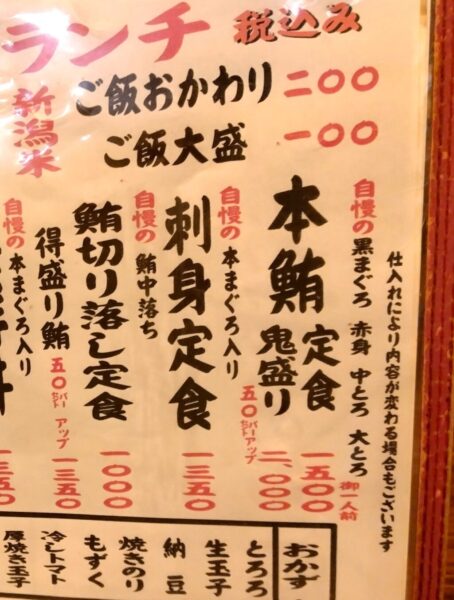 ランチ 税込み
新潟米
ご飯おかわり 二〇〇
ご飯大盛 一〇〇
仕入れにより内容が変わる場合もございます
自慢の 黒まぐろ 赤身 中とろ 大とろ
本鮪 定食 一五〇〇 御一人前
鬼盛り 五〇パーセントアップ 二、〇〇〇
自慢の 本まぐろ入り
刺身定食 一三五〇
自慢の 鮪中落ち
鮪切り落し定食 一〇〇〇
得盛り鮪 五〇パーセントアップ 一三五〇
自慢の 本まぐろ入り
おかず
とろろ
生玉子
納豆
焼きのり
もずく
冷しトマト
厚焼き玉子